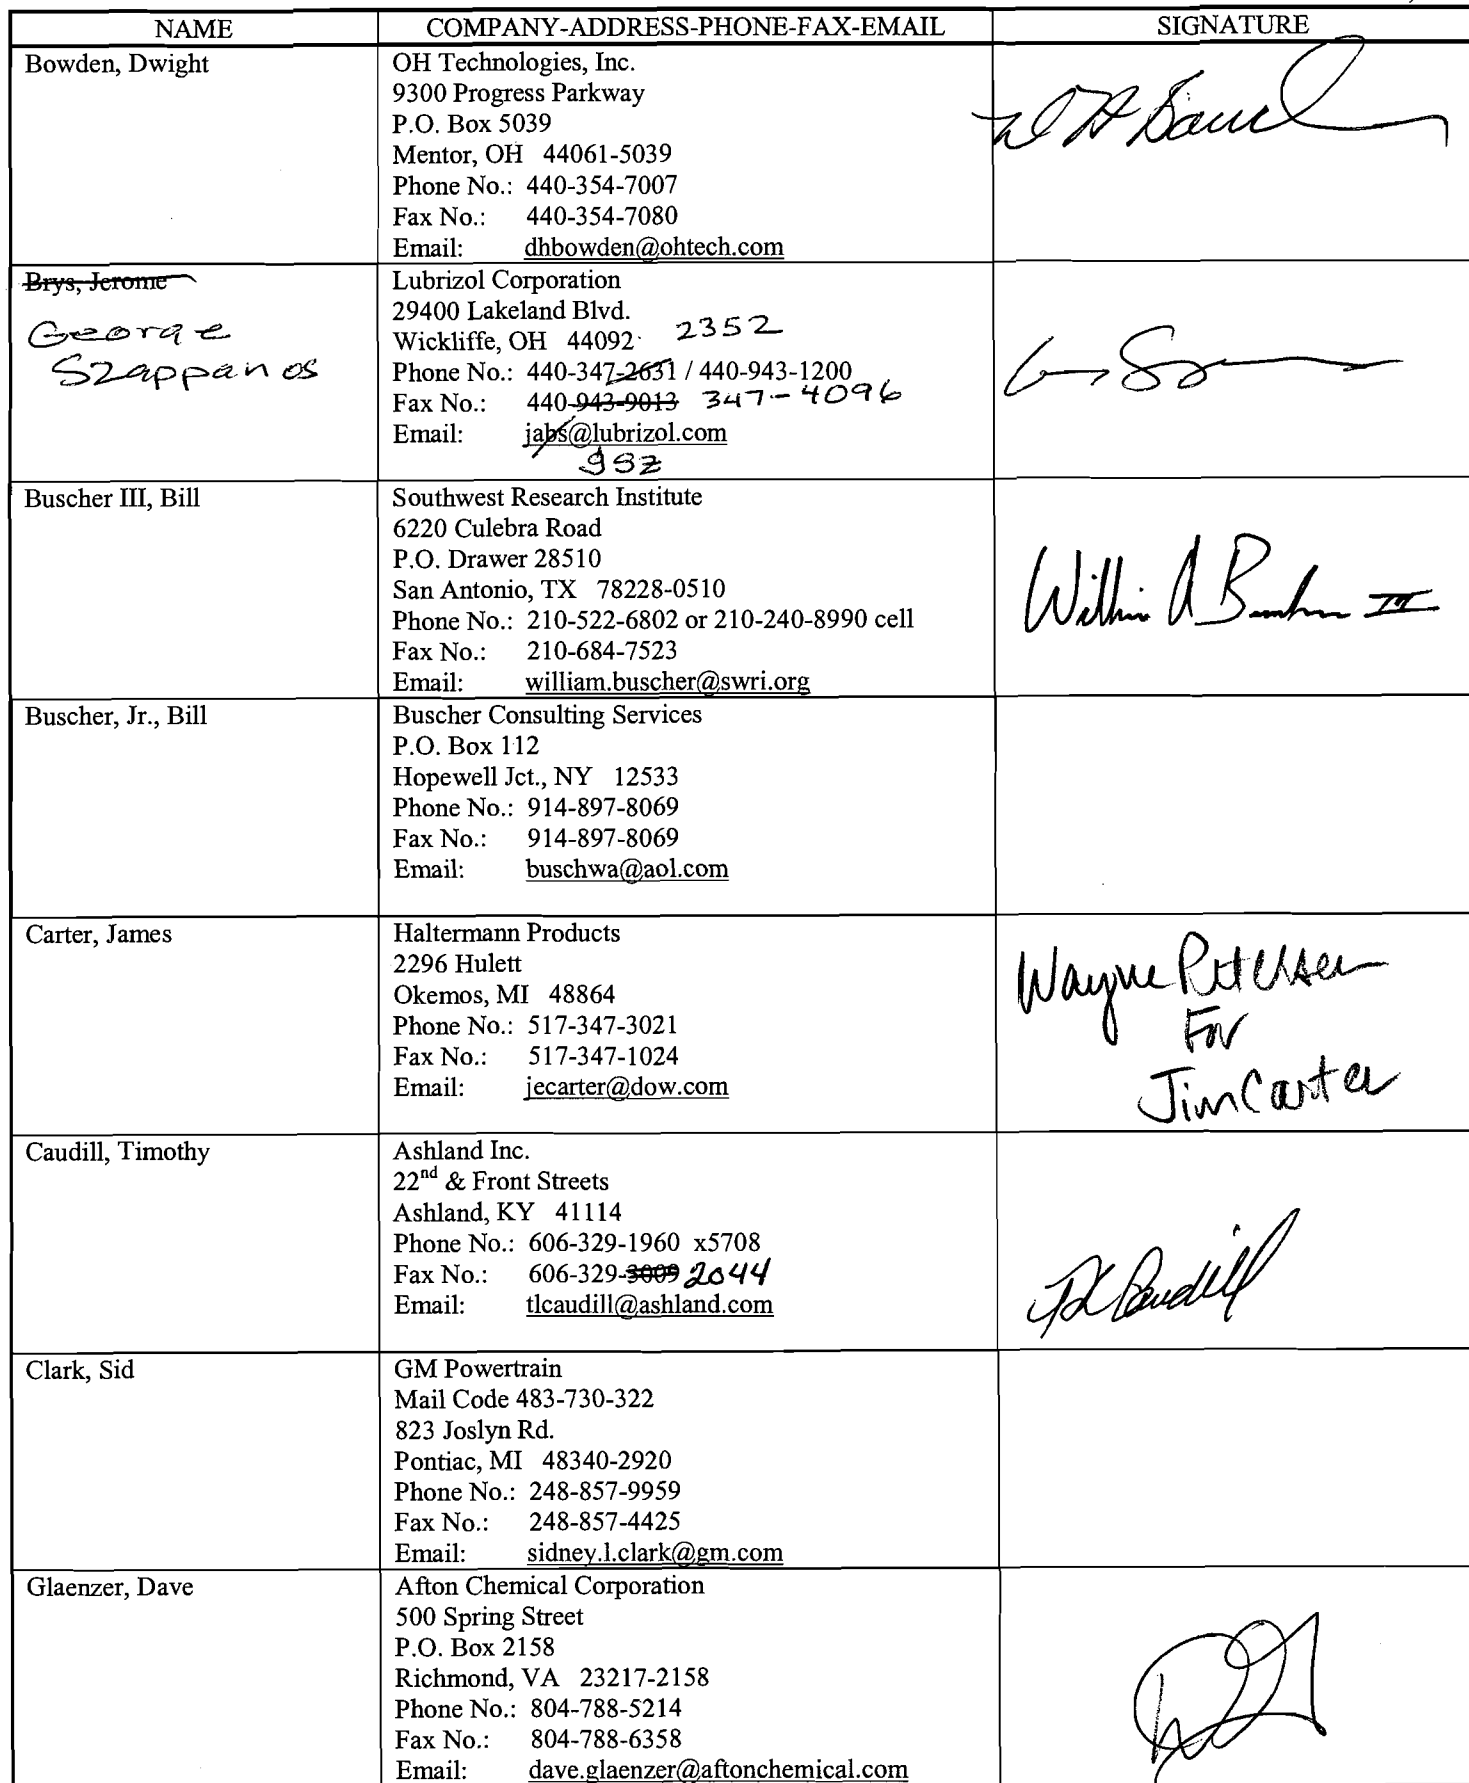 NAME COMPANY-ADDRESS-PHONE-FAX-EMAIL SIGNATURE
Bowden, Dwight
OH Technologies, Inc.
9300 Progress Parkway
P.O. Box 5039
Mentor, OH 44061-5039
Phone No.: 440-354-7007
Fax No.: 440-354-7080
Email: dhbowden@ohtech.com
Brys, Jerome
George
Szappanos
Lubrizol Corporation
29400 Lakeland Blvd.
Wickliffe, OH 44092 2352
Phone No.: 440-347-2631 / 440-943-1200
Fax No.: 440-943-9013 347-4096
Email: jabs@lubrizol.com
gsz
Buscher III, Bill
Southwest Research Institute
6220 Culebra Road
P.O. Drawer 28510
San Antonio, TX 78228-0510
Phone No.: 210-522-6802 or 210-240-8990 cell
Fax No.: 210-684-7523
Email: william.buscher@swri.org
William A Buscher III
Buscher, Jr., Bill
Buscher Consulting Services
P.O. Box 112
Hopewell Jct., NY 12533
Phone No.: 914-897-8069
Fax No.: 914-897-8069
Email: buschwa@aol.com
Carter, James
Haltermann Products
2296 Hulett
Okemos, MI 48864
Phone No.: 517-347-3021
Fax No.: 517-347-1024
Email: jecarter@dow.com
Wayne Petersen
For
Jim Carter
Caudill, Timothy
Ashland Inc.
22nd & Front Streets
Ashland, KY 41114
Phone No.: 606-329-1960 x5708
Fax No.: 606-329-3009 2044
Email: tlcaudill@ashland.com
TL Caudill
Clark, Sid
GM Powertrain
Mail Code 483-730-322
823 Joslyn Rd.
Pontiac, MI 48340-2920
Phone No.: 248-857-9959
Fax No.: 248-857-4425
Email: sidney.l.clark@gm.com
Glaenzer, Dave
Afton Chemical Corporation
500 Spring Street
P.O. Box 2158
Richmond, VA 23217-2158
Phone No.: 804-788-5214
Fax No.: 804-788-6358
Email: dave.glaenzer@aftonchemical.com